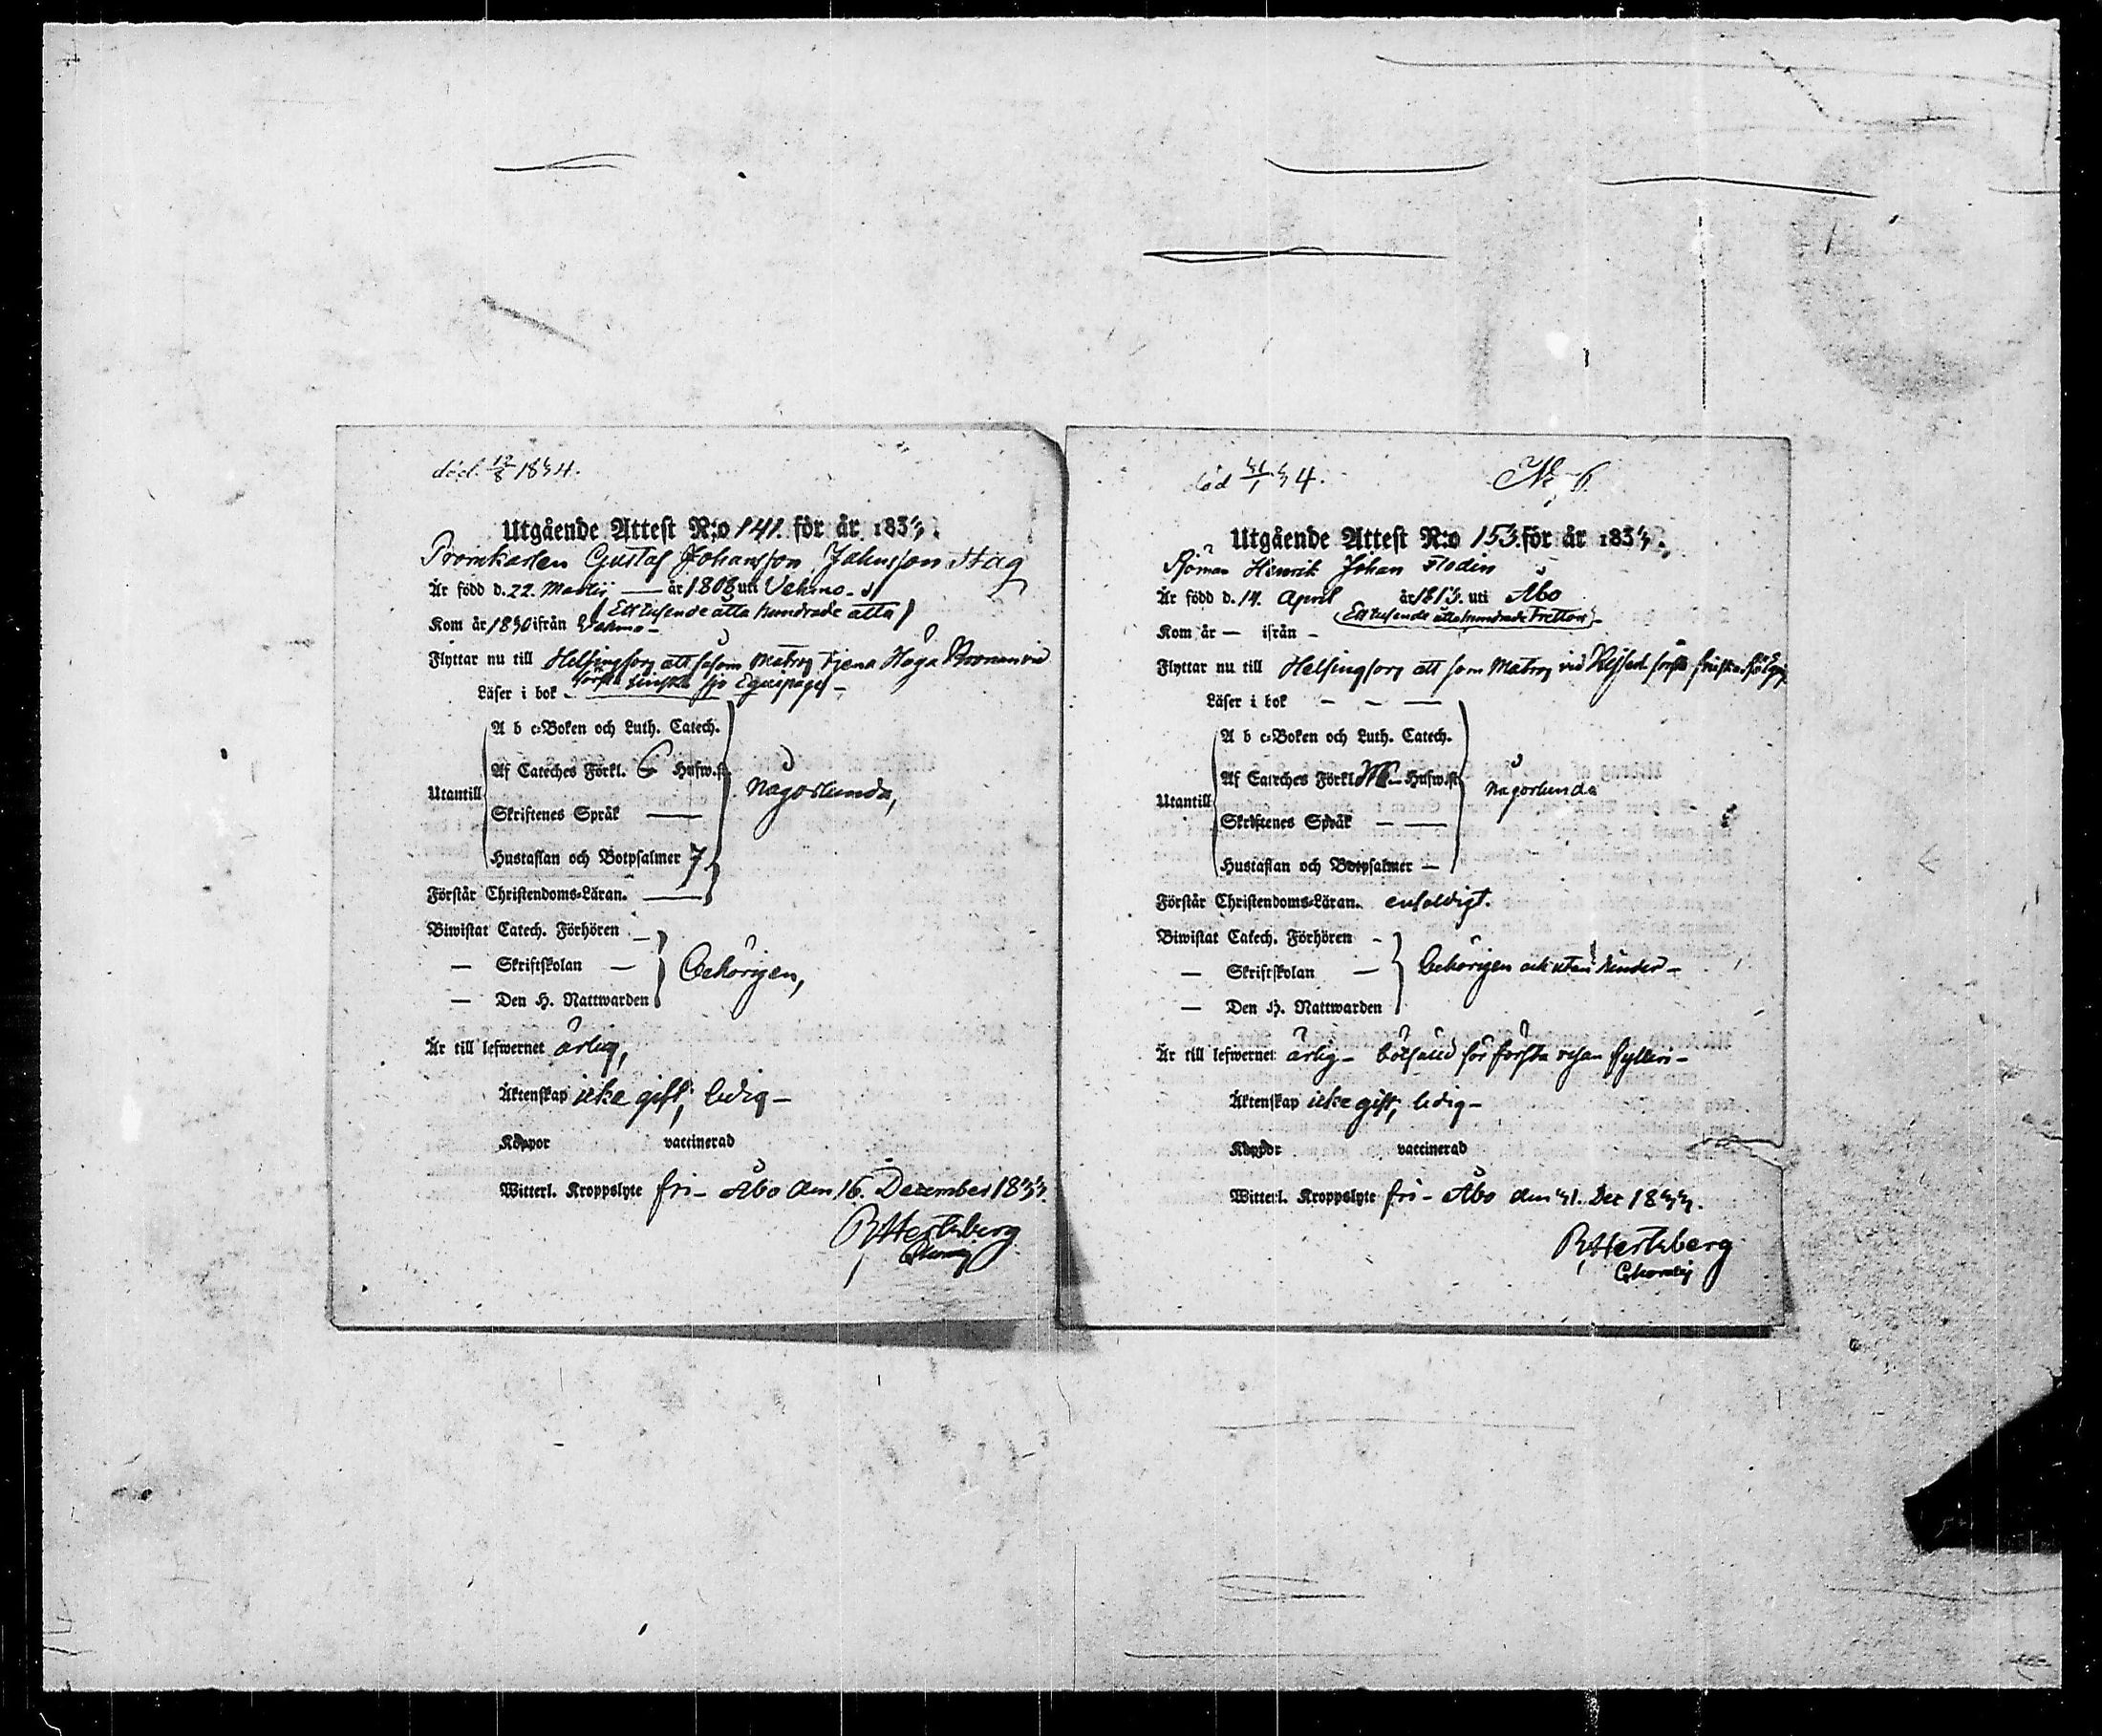 död 12/8 1834.
Utgående Attest N:o 141. för år 1833.
Promkarlen Gustaf Johansson Johnsson Stag
Är född d. 22. Martii — år 1808 uti Vehmo -
(Ett tusende åtta hundrade åtta)
Kom år 1830 ifrån Vehmo -
Flyttar nu till Helsingfors att såsom Matros tjena Höga Kronan vid
första finska sjö Equipaget -
Läser i bok -
Utantill
A b c-Boken och Luth. Catech.
Af Cateches Förkl. 6 Husw.st.
Skriftenes Språk —
Hustaflan och Botpsalmer 7
Förstår Christendoms-Läran. —
någorlunda,
Biwistat Catech. Förhören —
— Skriftskolan —
— Den H. Nattwarden
behörigen,
Är till lefwernet ärlig,
Äktenskap icke gift, ledig -
Koppor vaccinerad
Witterl. Kroppslyte fri - Åbo den 16. December 1833.
R Hertzberg
död 31/1 34.
No 6
Utgående Attest N:o 153. för år 1833.
Sjöman Henrik Johan Flodin
Är född d. 14. April år 1813. uti Åbo
(Ett tusende åtta hundrade Tretton) -
Kom år — ifrån -
Flyttar nu till Helsingfors att som Matros vid första finska sjö Eqvip.
Läser i bok - - —
Utantill
A b c-Boken och Luth. Catech.
Af Cateches Förkl. Husw.st.
Skriftenes Språk - —
Hustaflan och Botpsalmer —
någorlunda
Förstår Christendoms-Läran. enfaldigt.
Biwistat Catech. Förhören -
— Skriftskolan —
— Den H. Nattwarden
behörigen och utan hinder -
Är till lefwernet ärlig - bötfälld för första resan fylleri -
Äktenskap icke gift, ledig -
Koppor vaccinerad
Witterl. Kroppslyte fri - Åbo den 31. Dec 1833.
R Hertzberg